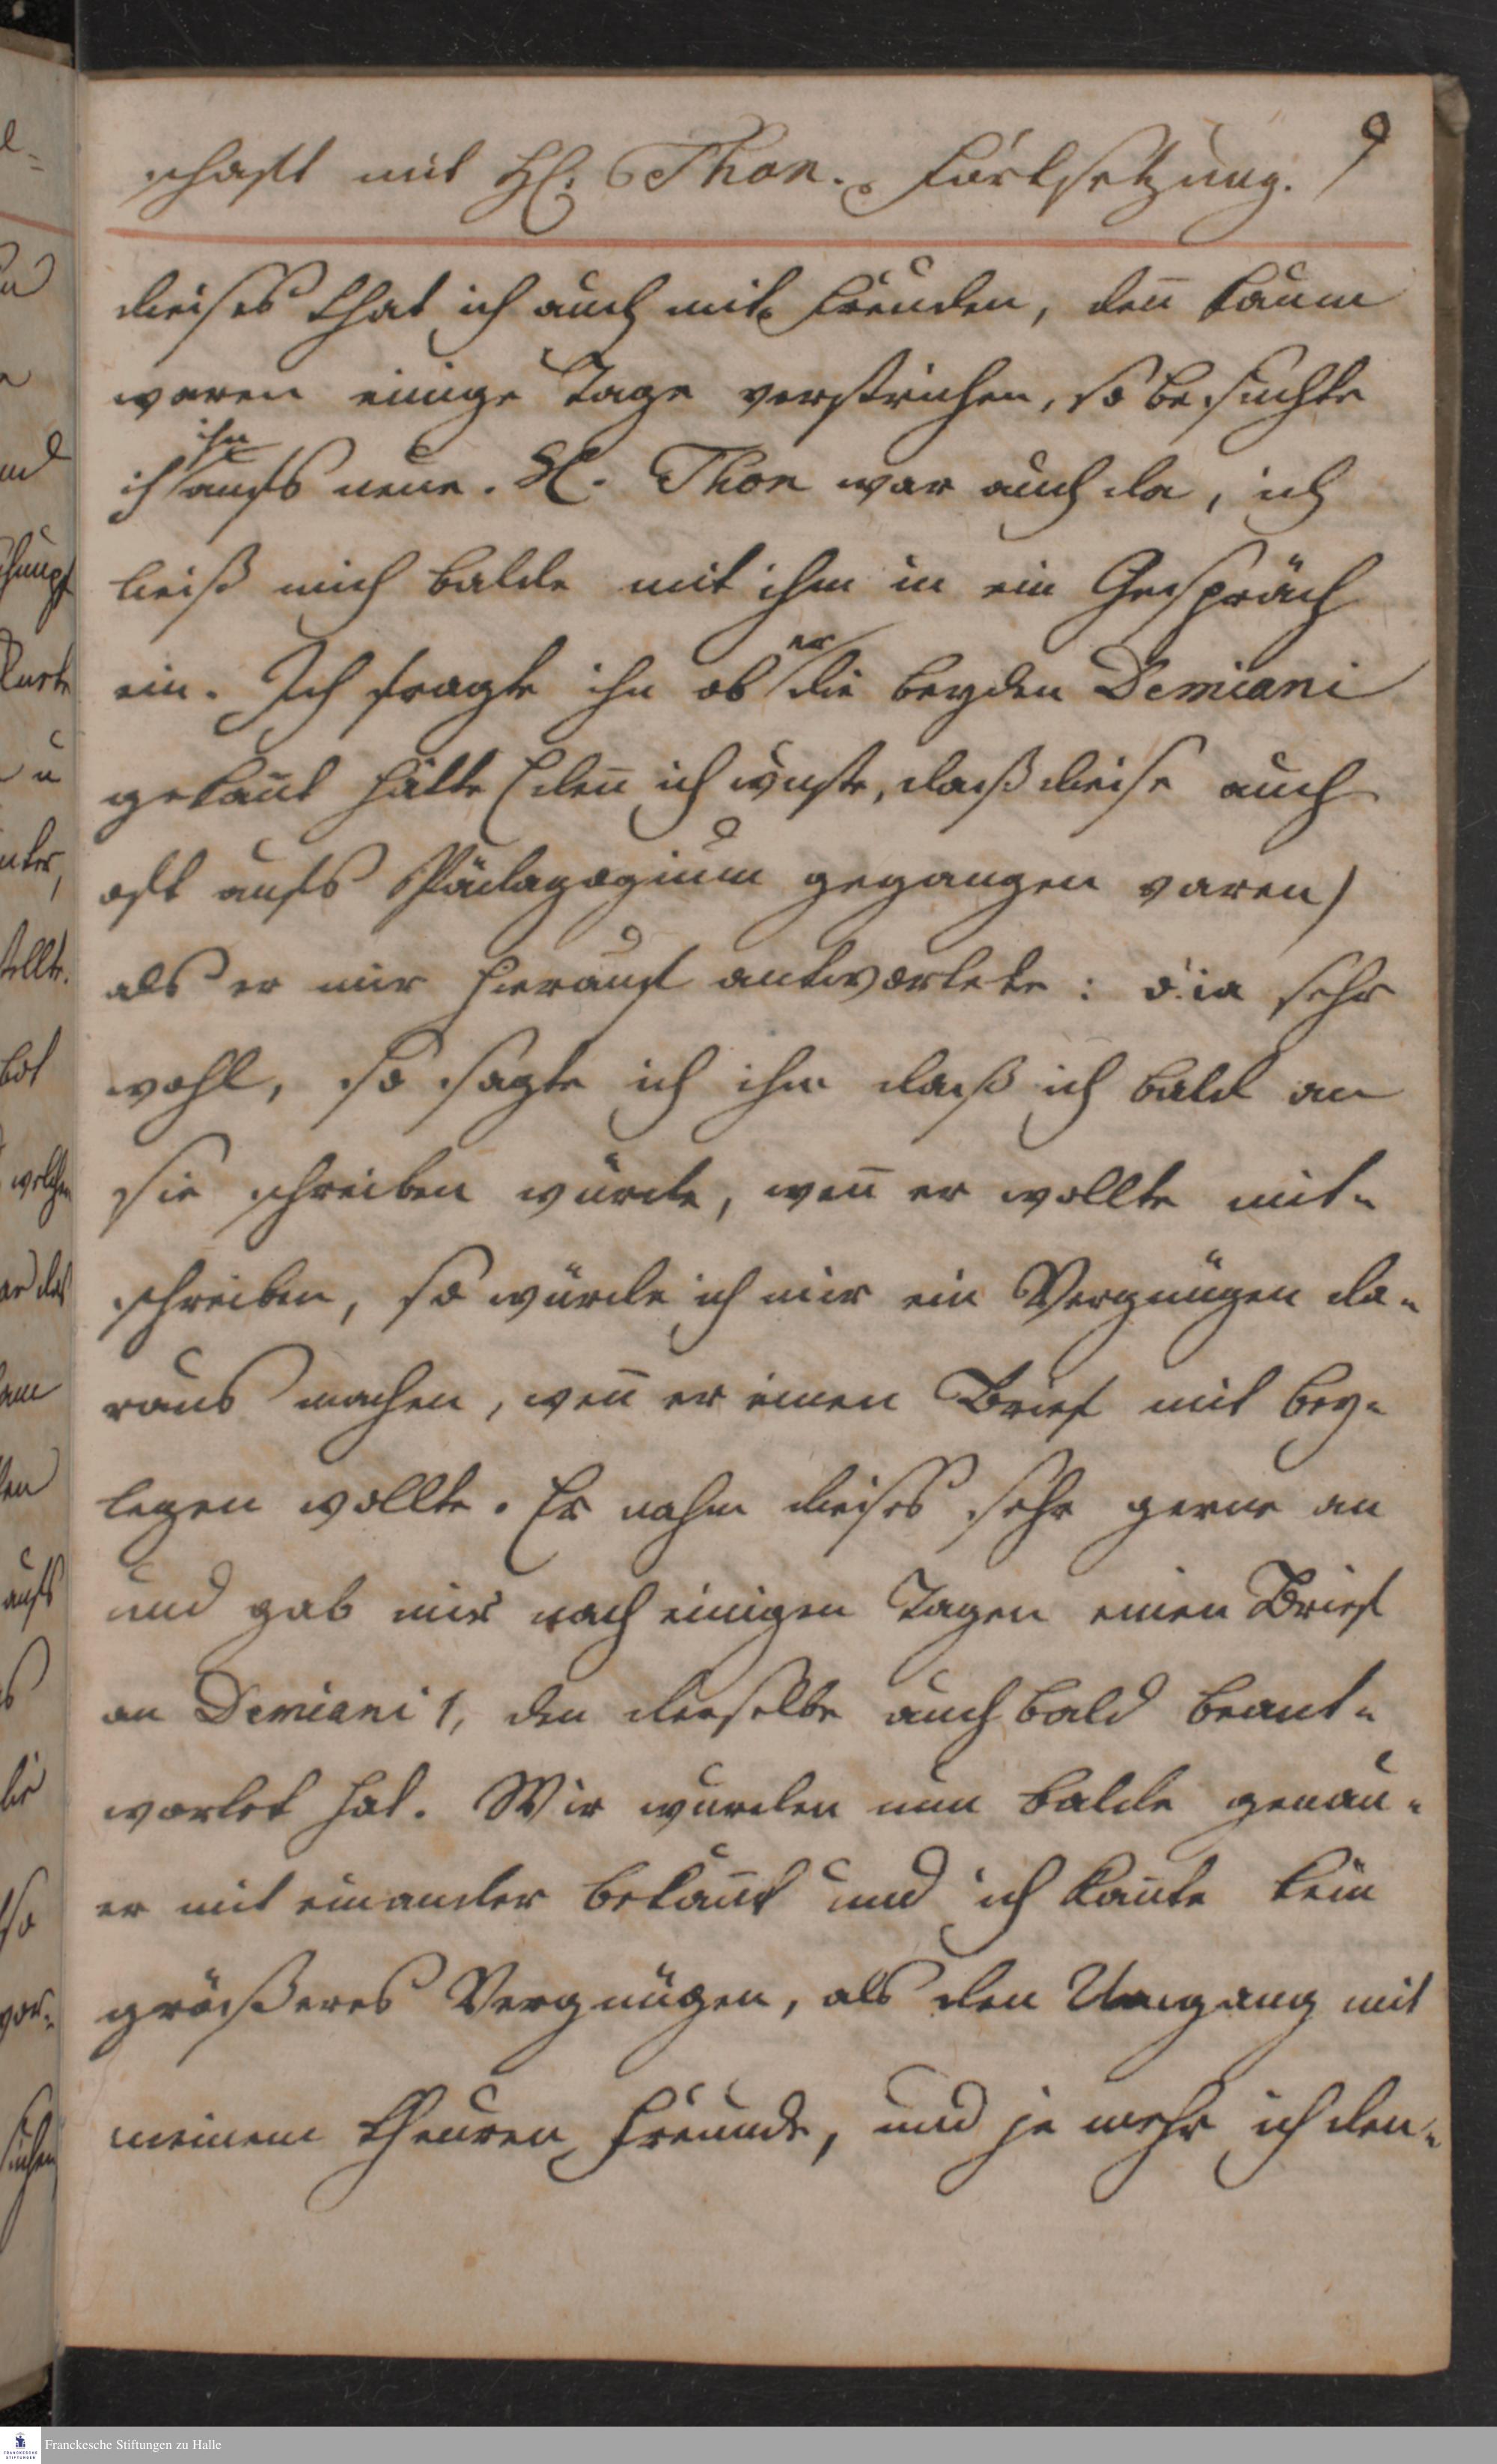 schafft mit Hℓ. Thon. Fortsetzung. 9
dieses that ich auch mit Freuden, deñ kaum
waren einige Tage verstrichen, so besuchte
ich ihn aufs neue. Hℓ. Thon war auch da, ich
ließ mich balde mit ihm in ein Gespräch
ein. Ich fragte ihn ob er die beyden Demiani
gekañt hätte (deñ ich wuste, daß diese auch
oft aufs Pädagogium gegangen waren)
als er mir hierauf antwortete: o ia sehr
wohl, so sagte ich ihm daß ich bald an
sie schreiben würde, weñ er wollte mit-
schreiben, so würde ich mir ein Vergnügen da-
raus machen, weñ er einen Brief mit bey-
legen wollte. Er nahm dieses sehr gerne an
und gab mir nach einigen Tagen einen Brief
an Demiani 1, den derselbe auch bald beant-
wortet hat. Wir wurden nun balde genau-
er mit einander bekañt und ich kañte kein
größeres Vergnügen, als den Umgang mit
meinem theuren Freunde, und je mehr ich den-
Franckesche Stiftungen zu Halle